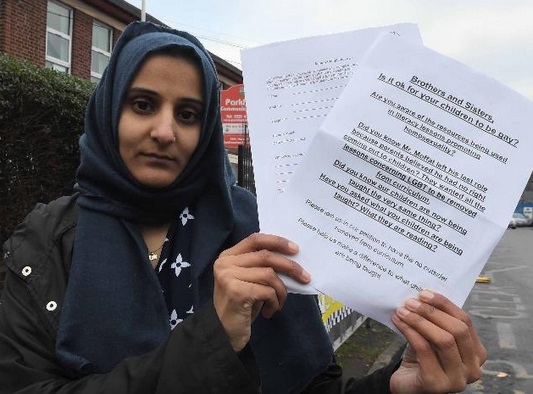 Park
Commun
Brothers and Sisters,
Is it ok for your children to be gay?
Are you aware of the resources being used
in literacy lessons promoting
homosexuality?
Did you know Mr. Moffat left his last role
because parents believed he had no right
coming out to children? They wanted all the
lessons concerning LGBT to be removed
from curriculum.
Did you know our children are now being
taught the very same thing?
Have you asked what you children are being
taught? What they are reading?
Please join us in our petition to have the no outsider
removed from curriculum
Please help us make a difference to what our children
are being taught.